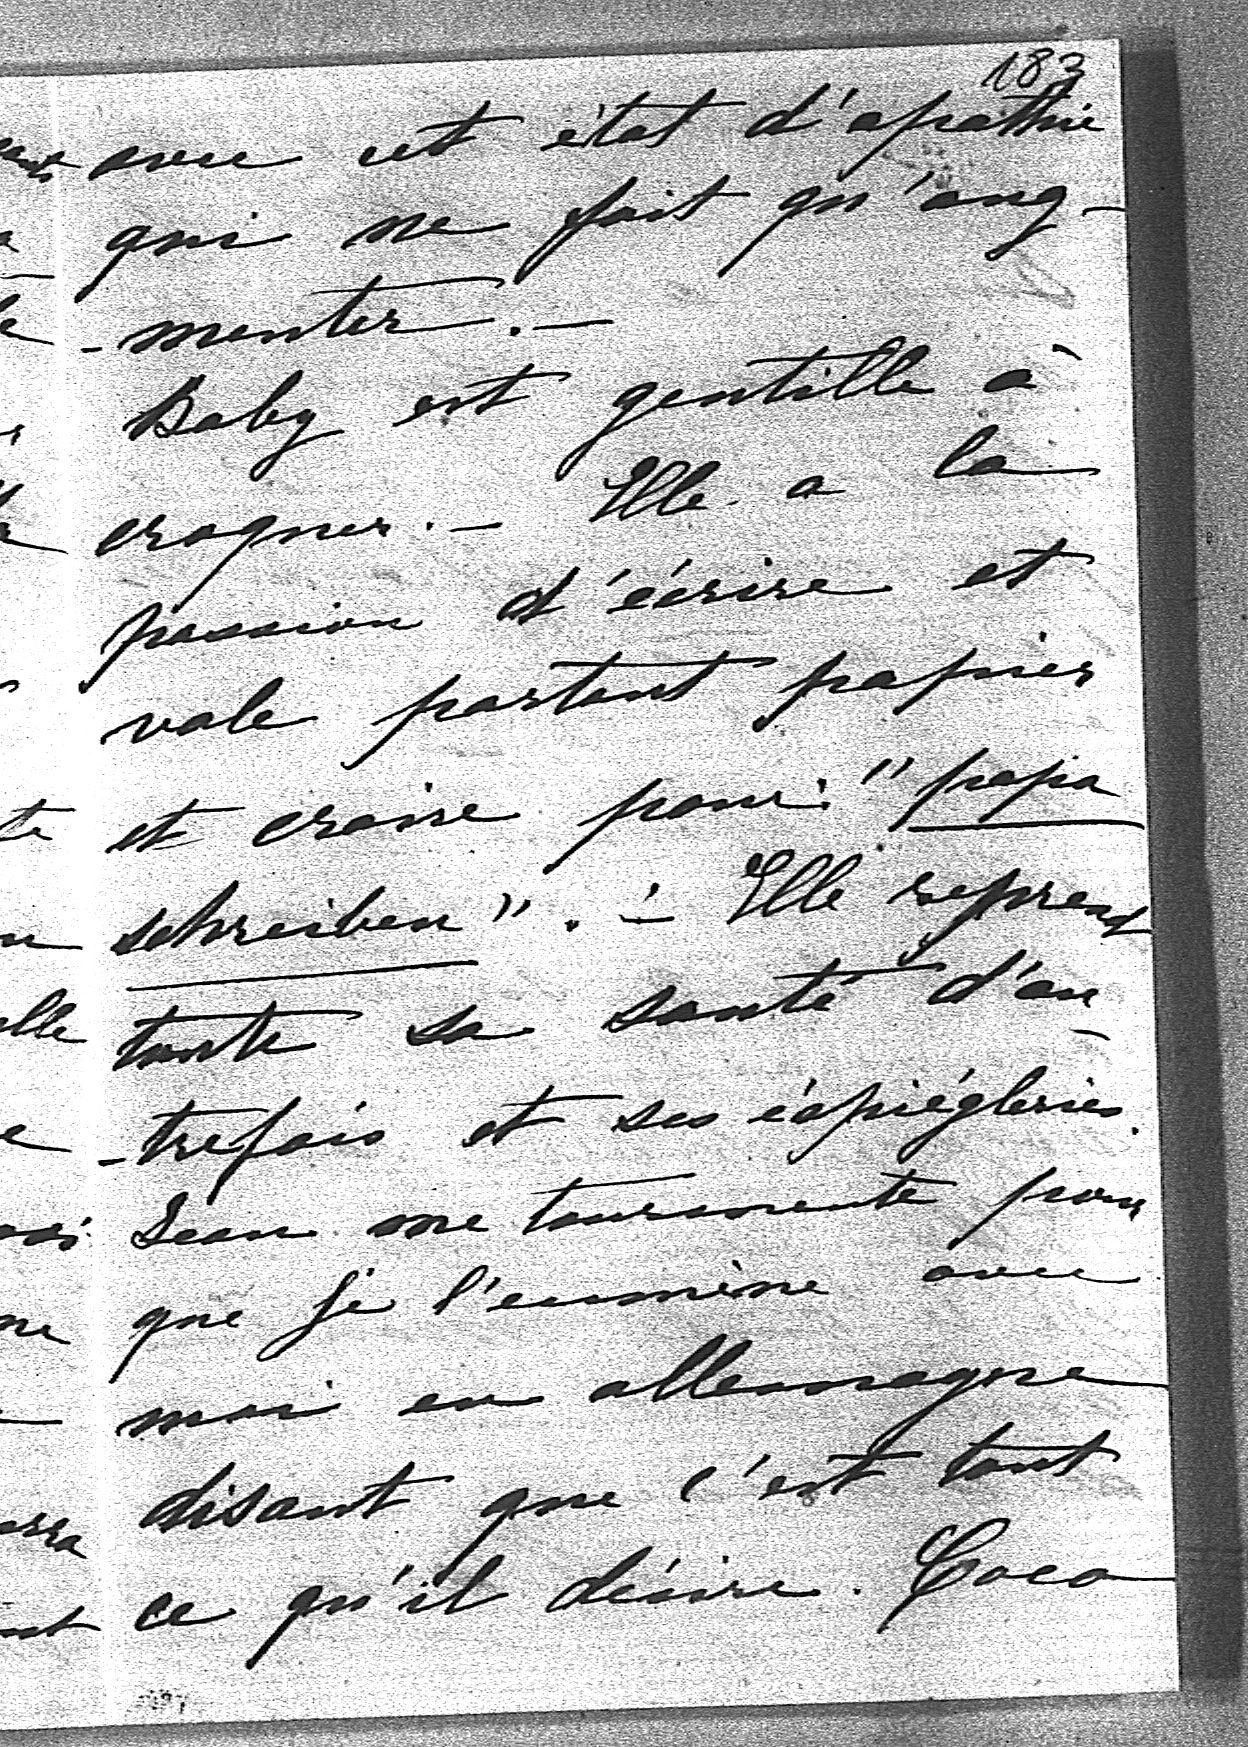 183
avec cet état d'apathie
qui ne fait qu'aug-
-menter. —
Baby est gentille à
croquer. — Elle a la
passion d'écrire et
vole partout papier
et craion pour: "papa
schreiben". — Elle reprend
toute sa santé d'au-
-trefois et ses éspiégleries.
Jean me tourmente pour
que je l'emmène avec
moi en allemagne
disant que c'est tout
ce qu'il désire. Coco